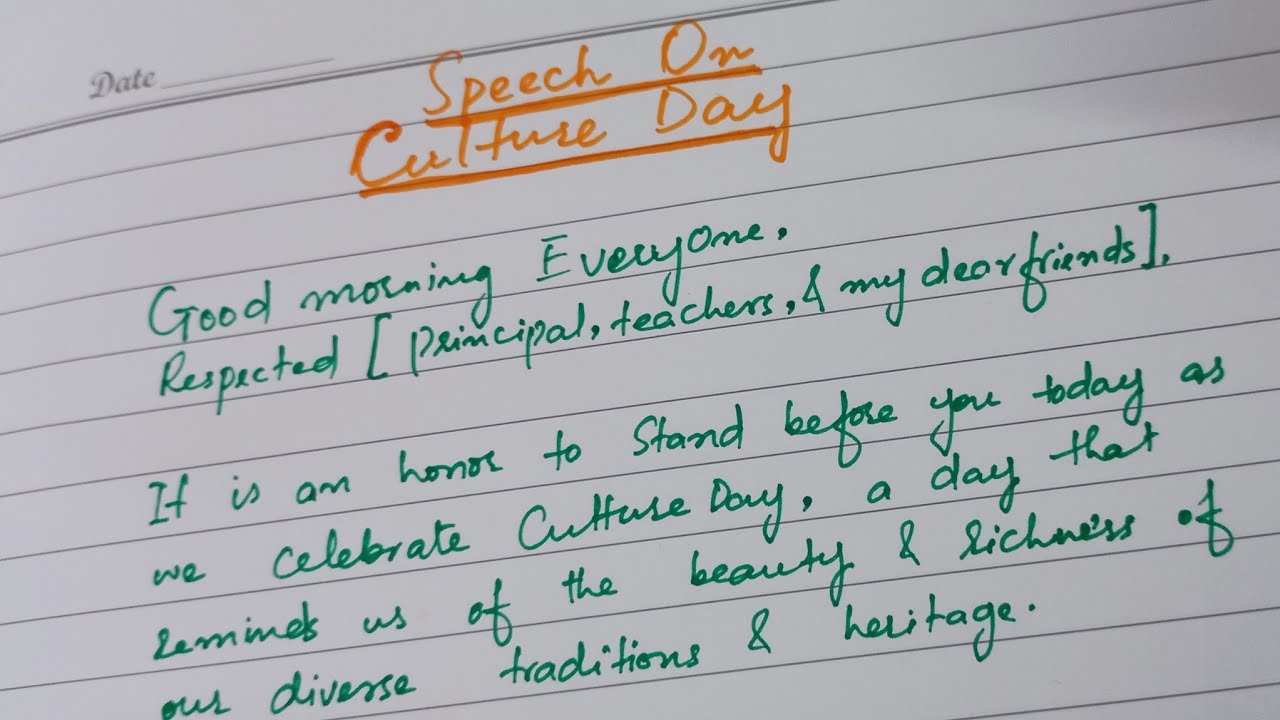 Date
Speech On
Culture Day
Good morning Everyone,
Respected [principal, teachers, & my dear friends],
It is an honor to stand before you today as
we celebrate Culture Day, a day that
reminds us of the beauty & richness of
our diverse traditions & heritage.